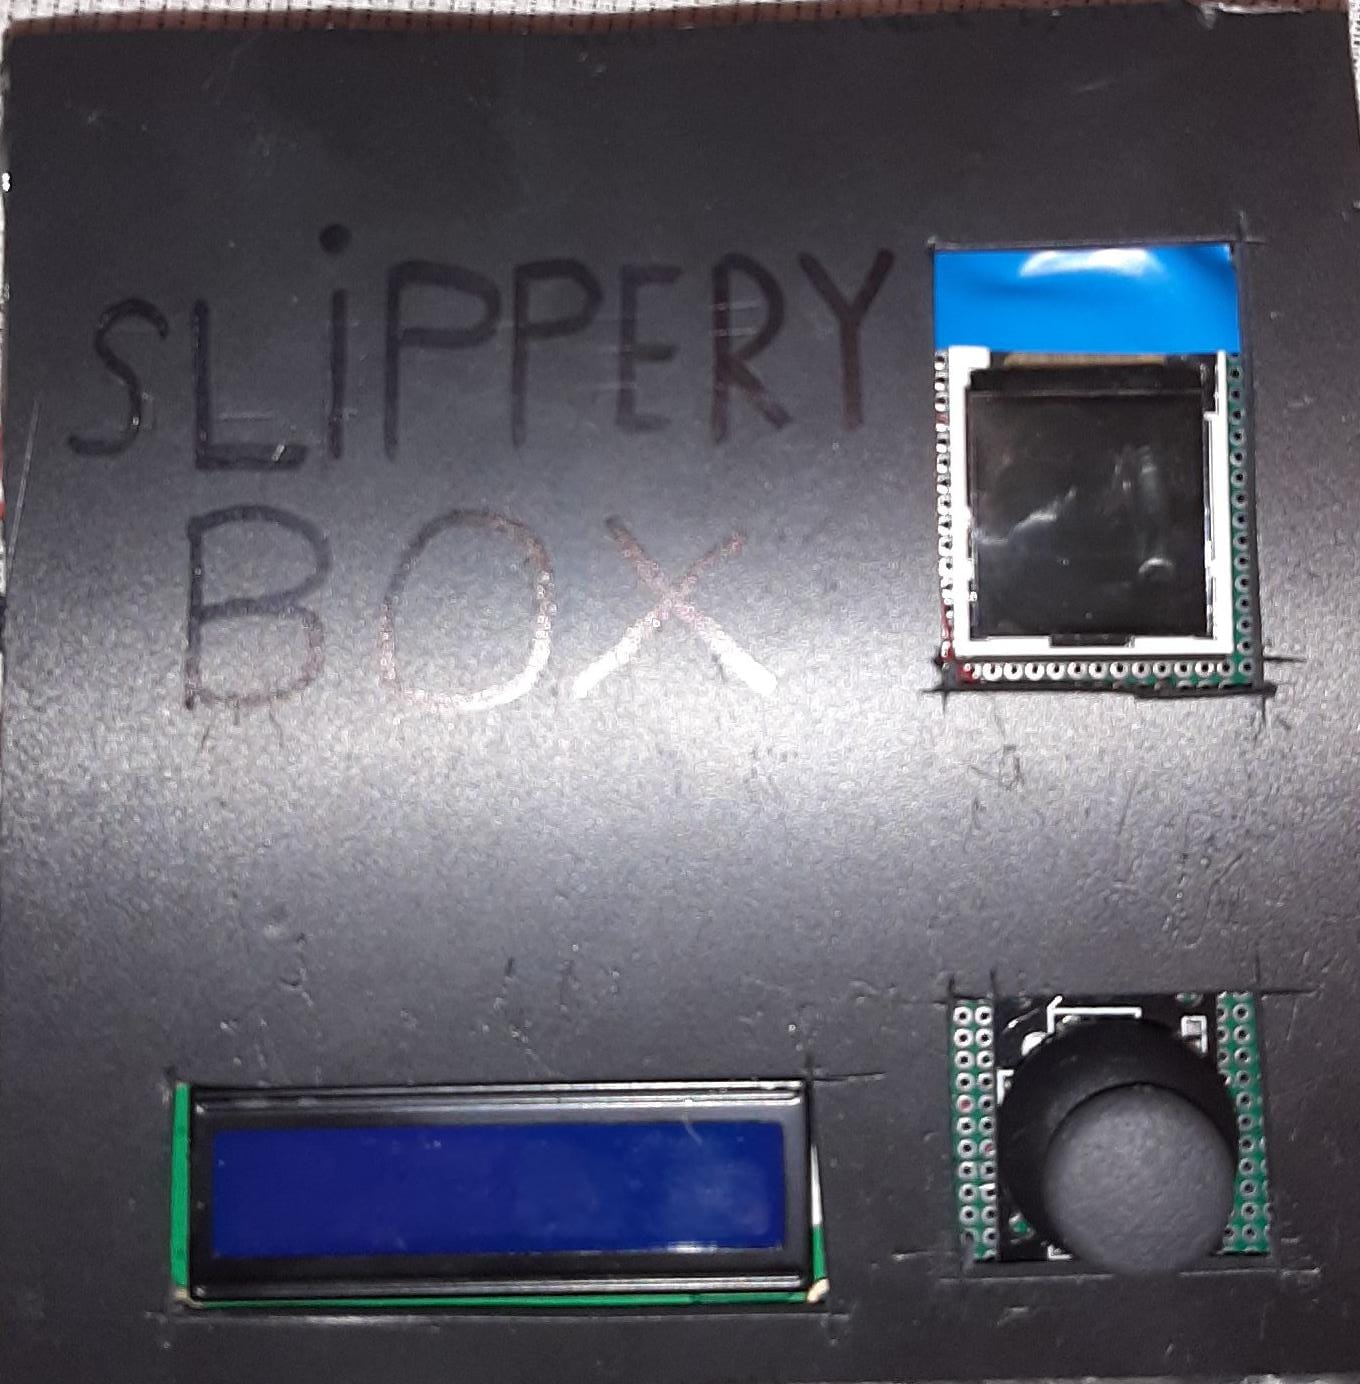 SLiPPERY
BOX